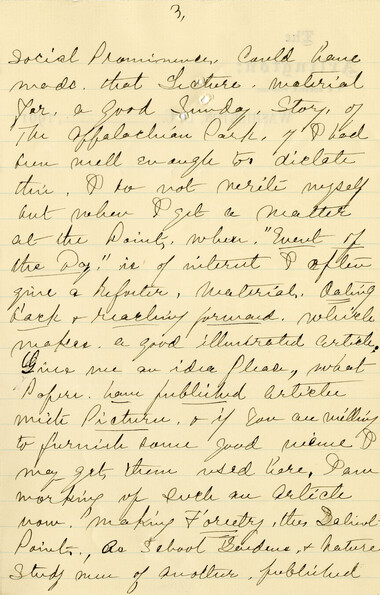 3,
Social Prominence, could have
made that Lecture material
for a good Sunday Story of
The Appalachian Park, if I had
been well enough to dictate
this, I do not write myself
but when I get a matter
at the Point, when, "Event of
the Day," is of interest I often
give a Reporter, Material, Dating
back & reaching forward, which
makes a good illustrated article.
Give me an idea Please, what
Papers have published article
with Picture, & if you are willing
to furnish some good ones I
may get them used here, I am
working up such an article
now. making Forestry, the Salient
Point, as School Gardens, & Nature
Study was of another, published